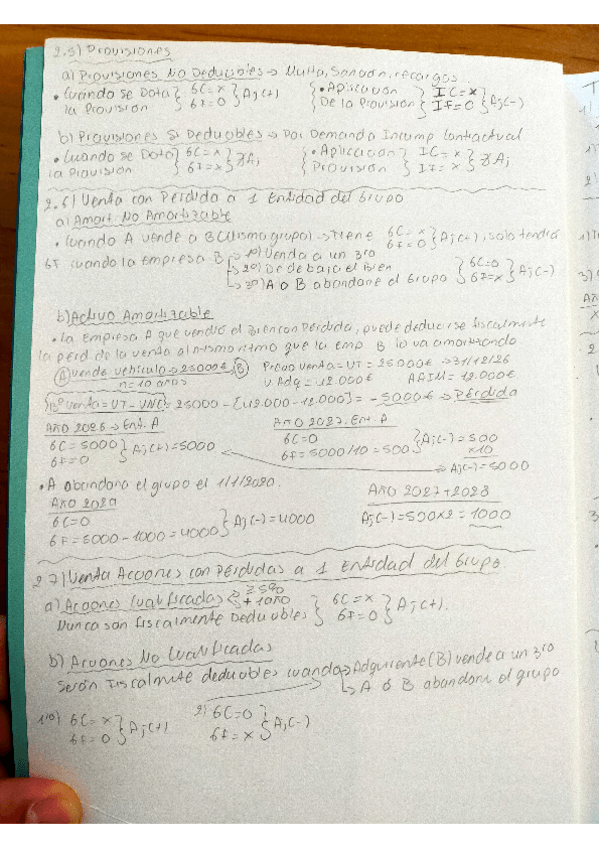 2.5) Provisiones
a) Provisiones No Deducibles → Multa, Sanción, recargos
• Cuando se Dota la Provisión } GC = x GF = 0 } Aj(+) • Aplicación De la Provisión } IC = x IF = 0 } Aj(-)
b) Provisiones Sí Deducibles → Por Demanda Incump Contractual
• Cuando se Dota la Provisión } GC = x GF = x } Aj • Aplicación Provisión } IC = x IF = x } Aj
2.6) Venta con Pérdida a 1 Entidad del Grupo
a) No Amortizable
• Cuando A vende a B (mismo grupo) → Tiene GC = x GF = 0 } Aj(+), solo tendrá
GF cuando la empresa B → 1º) Venda a un 3ro
2º) De de baja el Bien
3º) A o B abandone el Grupo } GC = 0 GF = x } Aj(-)
b) Activo Amortizable
• La Empresa A que vendió el Bien con Pérdida, puede deducirse fiscalmente
la pérd de la venta al mismo ritmo que la emp B lo va amortizando
(A) vende vehículo → 25000€ (B) Precio Venta = VT = 25000€ → 31/12/26
n = 10 años V Adq = 42.000€ AAIM = 12.000€
Bº Venta = VT - VNC = 25000 - [42.000 - 12.000] = -5000€ → Pérdida
Año 2026 → Ent. A Año 2027. Ent. A
GC = 5000 GF = 0 } Aj(+) = 5000 GC = 0 GF = 5000/10 = 500 } Aj(-) = 500
x10
→ Aj(-) = 5000
• A abandona el grupo el 1/1/2020. Año 2027 + 2028
Año 2029
GC = 0 Aj(-) = 500 x 2 = 1000
GF = 5000 - 1000 = 4000 } Aj(-) = 4000
2.7) Venta Acciones con Pérdidas a 1 Entidad del Grupo
a) Acciones Cualificadas ≥ 5% + 1 año
Nunca son fiscalmente Deducibles } GC = x GF = 0 } Aj(+).
b) Acciones No Cualificadas
Serán Fiscalmte deducibles cuando → Adquirente (B) vende a un 3ro
→ A ó B abandone el grupo
1º) GC = x GF = 0 } Aj(+) 2) GC = 0 GF = x } Aj(-)